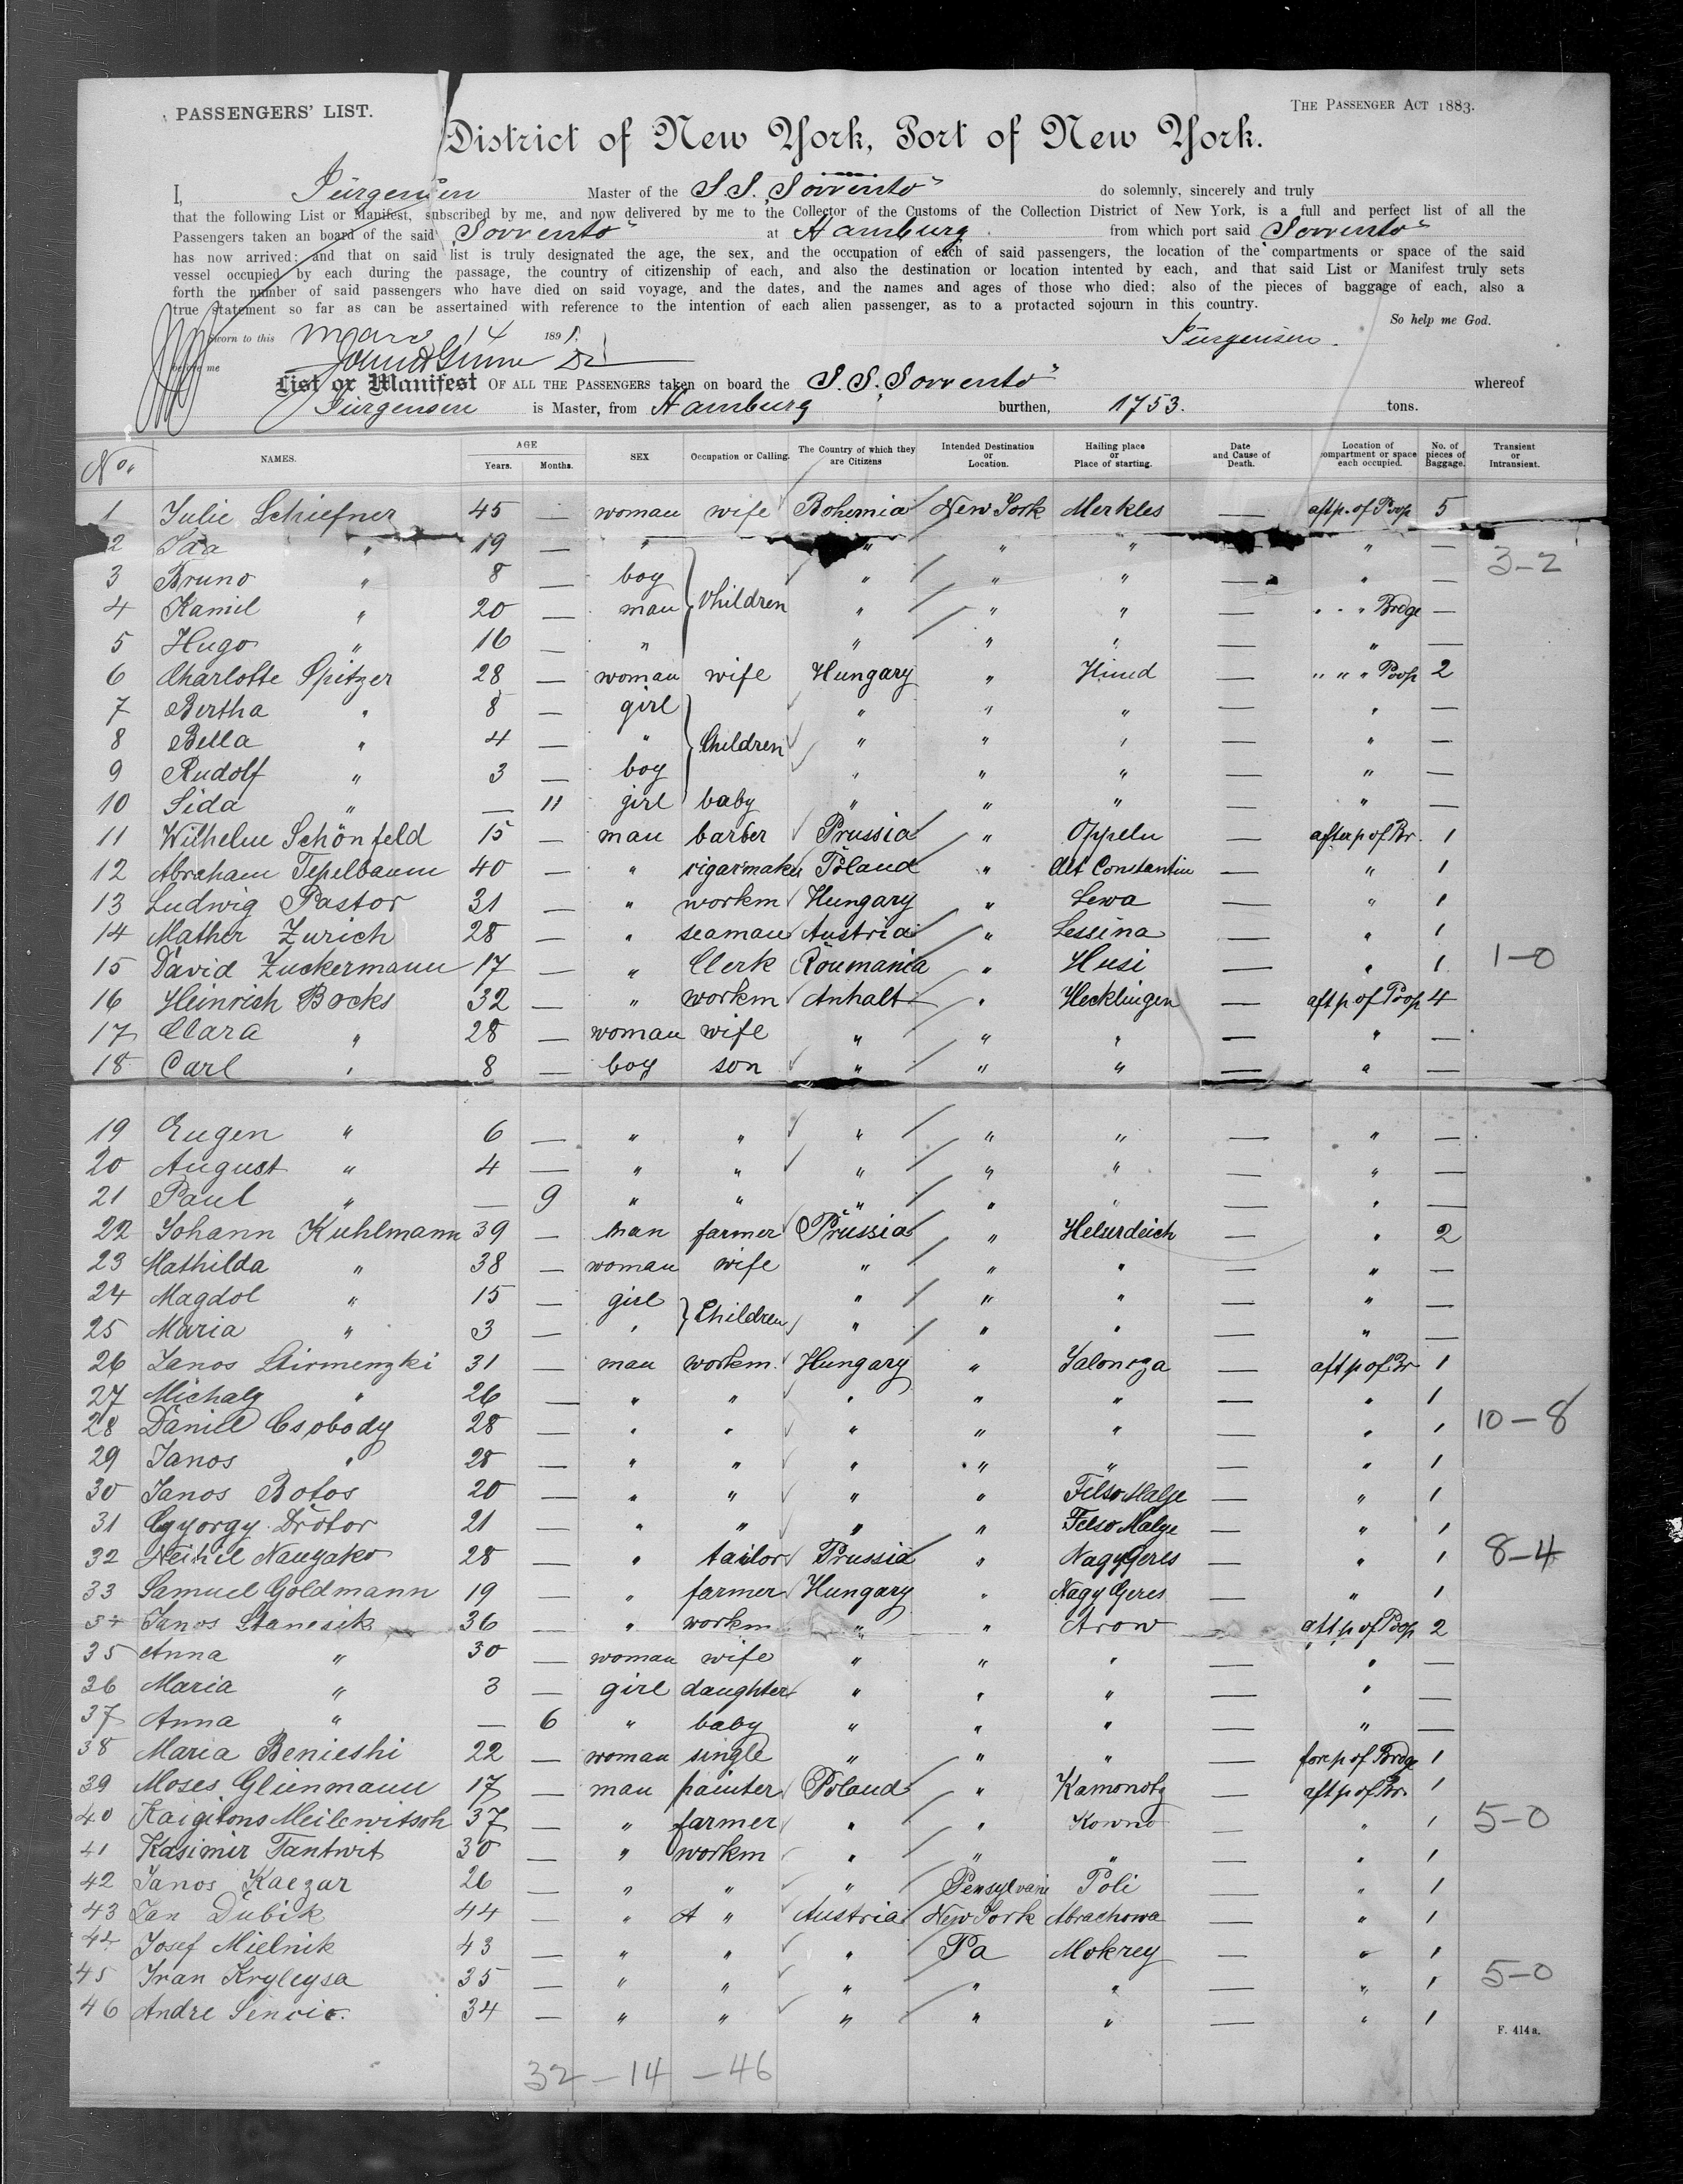 PASSENGERS' LIST.
THE PASSENGER ACT 1883.
District of New York, Port of New York.
I, Jürgensen Master of the S.S. "Sorrento" do solemnly, sincerely and truly
that the following List or Manifest, subscribed by me, and now delivered by me to the Collector of the Customs of the Collection District of New York, is a full and perfect list of all the
Passengers taken an board of the said "Sorrento" at Hamburg from which port said "Sorrento"
has now arrived; and that on said list is truly designated the age, the sex, and the occupation of each of said passengers, the location of the compartments or space of the said
vessel occupied by each during the passage, the country of citizenship of each, and also the destination or location intented by each, and that said List or Manifest truly sets
forth the number of said passengers who have died on said voyage, and the dates, and the names and ages of those who died; also of the pieces of baggage of each, also a
true statement so far as can be assertained with reference to the intention of each alien passenger, as to a protacted sojourn in this country.
So help me God.
Sworn to this 14 1891. Jürgensen.
before me
List or Manifest OF ALL THE PASSENGERS taken on board the S.S. "Sorrento" whereof
Jürgensen is Master, from Hamburg burthen, 1753. tons.
No. NAMES. AGE Years. Months. SEX Occupation or Calling. The Country of which they are Citizens Intended Destination or Location. Hailing place or Place of starting. Date and Cause of Death. Location of compartment or space each occupied. No. of pieces of Baggage. Transient or Intransient.
1 Julie Schiefner 45 — woman wife Bohemia New York Merkles — aft p. of Poop 5
2 Ida " 19 — " " " " — " — 3-2
3 Bruno " 8 — boy " " " — " —
4 Kamil " 20 — man Children " " " — " " " Brdge —
5 Hugo " 16 — " " " " — " —
6 Charlotte Spitzer 28 — woman wife Hungary " — " " " Poop 2
7 Bertha " 8 — girl " " " — " —
8 Bella " 4 — " Children " " " — " —
9 Rudolf " 3 — boy " " " — " —
10 Sida " — 11 girl baby " " " — " —
11 Wilhelm Schönfeld 15 — man barber Prussia " Oppeln — after p of Br. 1
12 Abraham Tepelbaum 40 — " cigarmaker Poland " Alt Constantin — " 1
13 Ludwig Pastor 31 — " workm Hungary " Lewa — " 1
14 Mather Zurich 28 — " seaman Austria " Lessina — " 1
15 David Zuckermann 17 — " Clerk Roumania " Husi — " 1 1-0
16 Heinrich Bocks 32 — " workm Anhalt " Hecklingen — aft p of Poop 4
17 Clara " 28 — woman wife " " " — " —
18 Carl " 8 — boy son " " " — " —
19 Eugen " 6 — " " " " " — " —
20 August " 4 — " " " " " — " —
21 Paul " — 9 " " " " " — " —
22 Johann Kuhlmann 39 — man farmer Prussia " Helurdeich — " 2
23 Mathilda " 38 — woman wife " " " — " —
24 Magdol " 15 — girl " " " — " —
25 Maria " 3 — " Children " " " — " —
26 Janos Stirmenzki 31 — man workm. Hungary " Saloncza — aft p of Br 1
27 Michaly " 26 — " " " " " — " 1
28 Daniel Csobody 28 — " " " " " — " 1 10-8
29 Janos " 28 — " " " " " — " 1
30 Janos Botos 20 — " " " " Felso Malze — " 1
31 Gyorgy Drotor 21 — " " " " Felso Malze — " 1
32 28 — " tailor Prussia " Nagy Geres — " 1 8-4
33 Samuel Goldmann 19 — " farmer Hungary " Nagy Geres — " 1
34 Janos Stanesik 36 — " workm " " Arow — aft p of Poop 2
35 Anna " 30 — woman wife " " " — " —
36 Maria " 3 — girl daughter " " " — " —
37 Anna " — 6 " baby " " " — " —
38 Maria Benieshi 22 — woman single " " " — fore p of Brdge 1
39 Moses Glienmann 17 — man painter Poland " Kamonotz — aft p of Br. 1
40 Meilewitsch 37 — " farmer " " Kowno — " 1 5-0
41 Kasimir Tantwit 30 — " workm " " " — " 1
42 Janos Kaczar 26 — " " " Pensylvani Poli — " 1
43 Jan Dubik 44 — " " Austria New York Abrachowa — " 1
44 Josef Mielnik 43 — " " " Pa Mokrey — " 1
45 Ivan Kryleysa 35 — " " " " " — " 1 5-0
46 Andre Sencio. 34 — " " " " " — " 1
F. 414a.
32 — 14 — 46